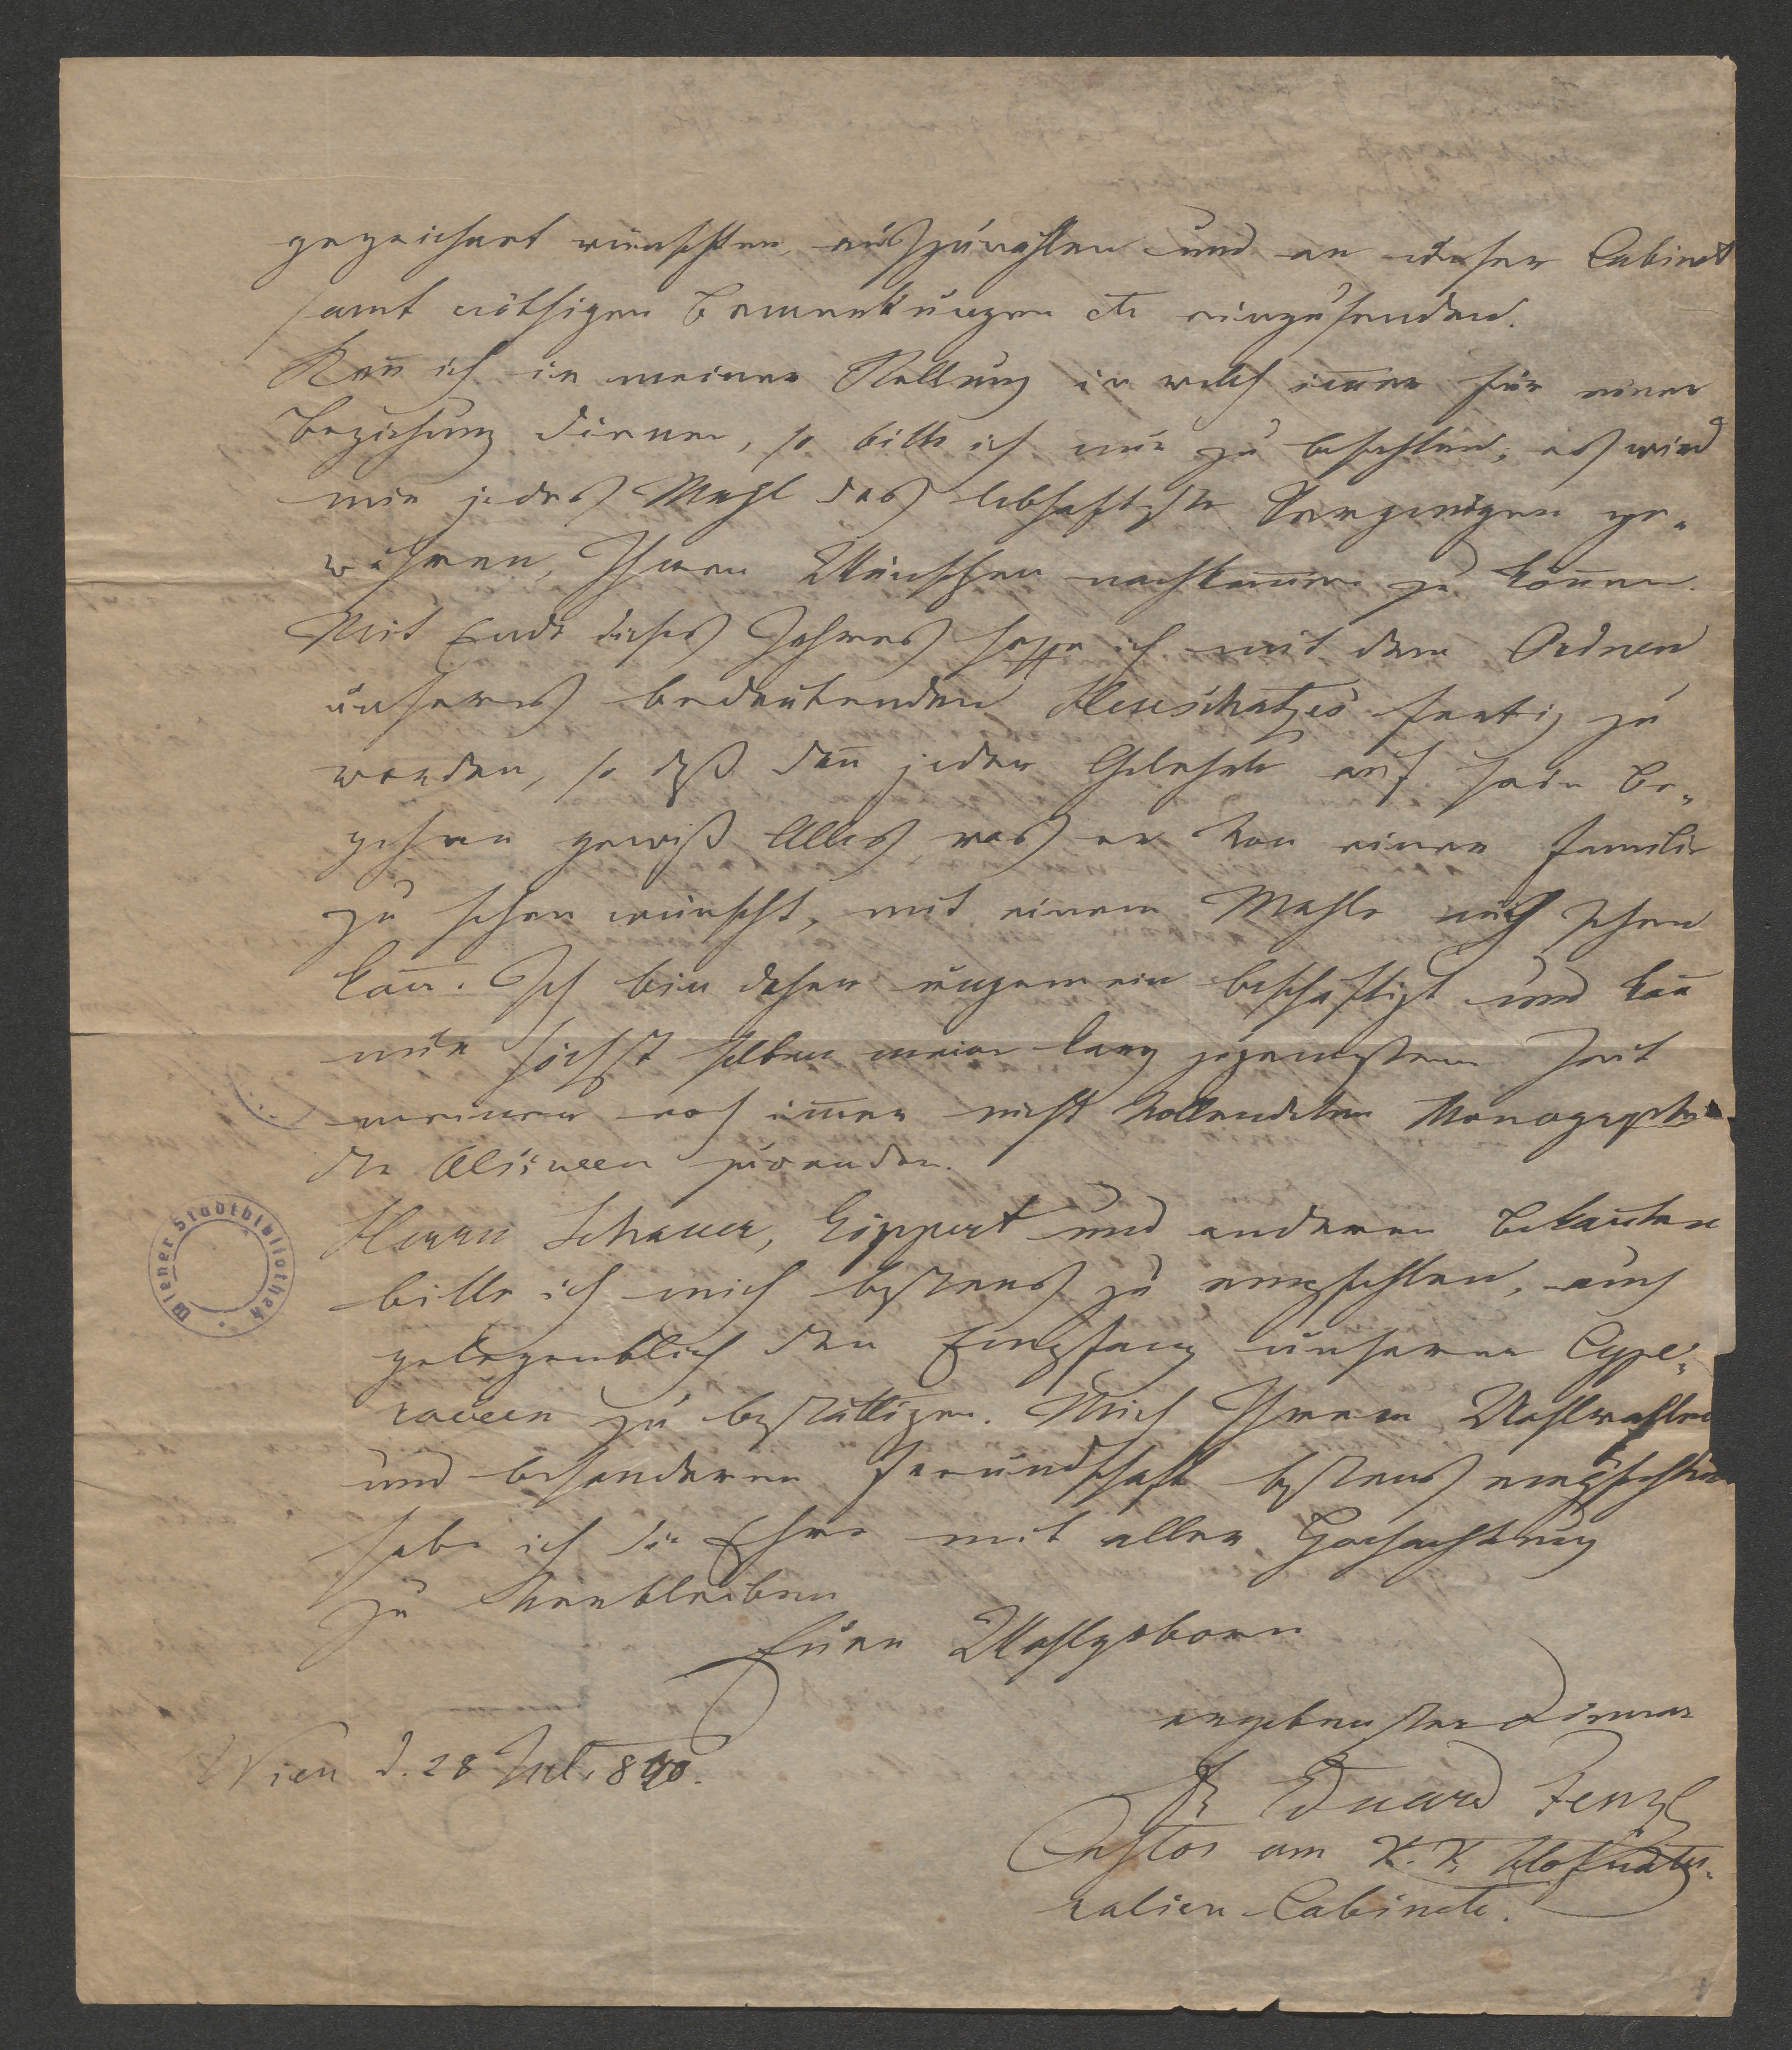 gezeichnet wünschten, auszuwählen und an unser Cabinet
samt nöthigen Bemerkungen etc einzusenden.
Kan̅ ich in meiner Stellung in welch im̅er für einer
Beziehung dienen, so bitte ich nur zu befehlen, es wird
mir jedes Mahl das lebhafteste Vergnügen ge-
währen, Ihren Wünschen nachkom̅en zu kön̅en.
Mit Ende dieses Jahres hoffe ich mit dem Ordnen
unseres bedeutenden Heuschatzes fertig zu
werden, so daß dan̅ jeder Gelehrte auf sein Be-
gehren gewiß Alles, was er von einer Familie
zu sehen wünscht, mit einem Mahle auch sehen
kan̅. Ich bin daher ungemein beschäftigt und kan̅
nur höchst selten meine karg zugemessene Zeit
meiner noch im̅er nicht vollendeten Monographie
der Alsineen zuwenden.
Herrn Schauer, Göppert und anderen Bekan̅ten
bitte ich mich bestens zu empfehlen, auch
gelegentlich den Empfang unserer Cype-
raceen zu bestättigen. Mich Ihrem Wohlwollen
und besonderen Freundschaft bestens empfehlend
habe ich die Ehre mit aller Hochachtung
zu verbleiben
Euer Wohlgeboren
ergebenster Diener
Wien d. 28 Jul. 840.
Dr Eduard Fenzl
Custos am K. K. Hofnatu-
ralien-Cabinete.
Wiener Stadtbibliothek